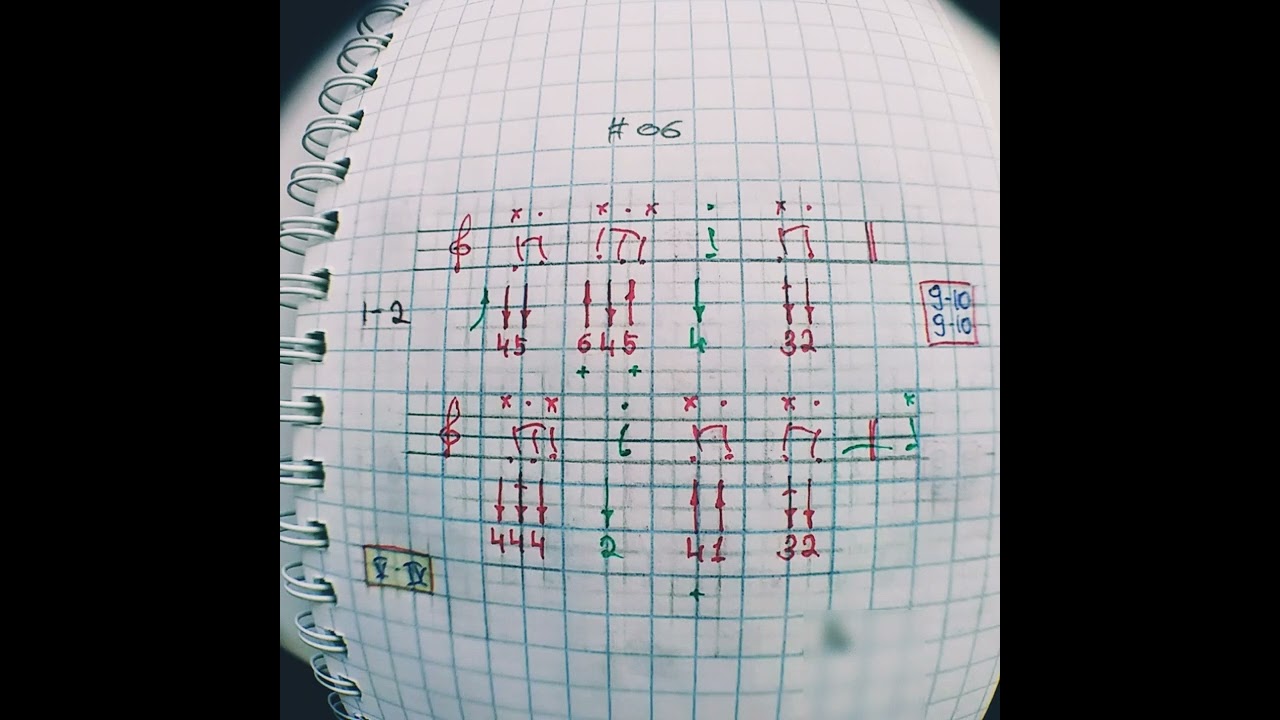 # 06
x . x . x . x .
1-2
9-10
9-10
45 645 4 32
+ +
x . x . x . x . x
444 2 41 32
V-IV
+